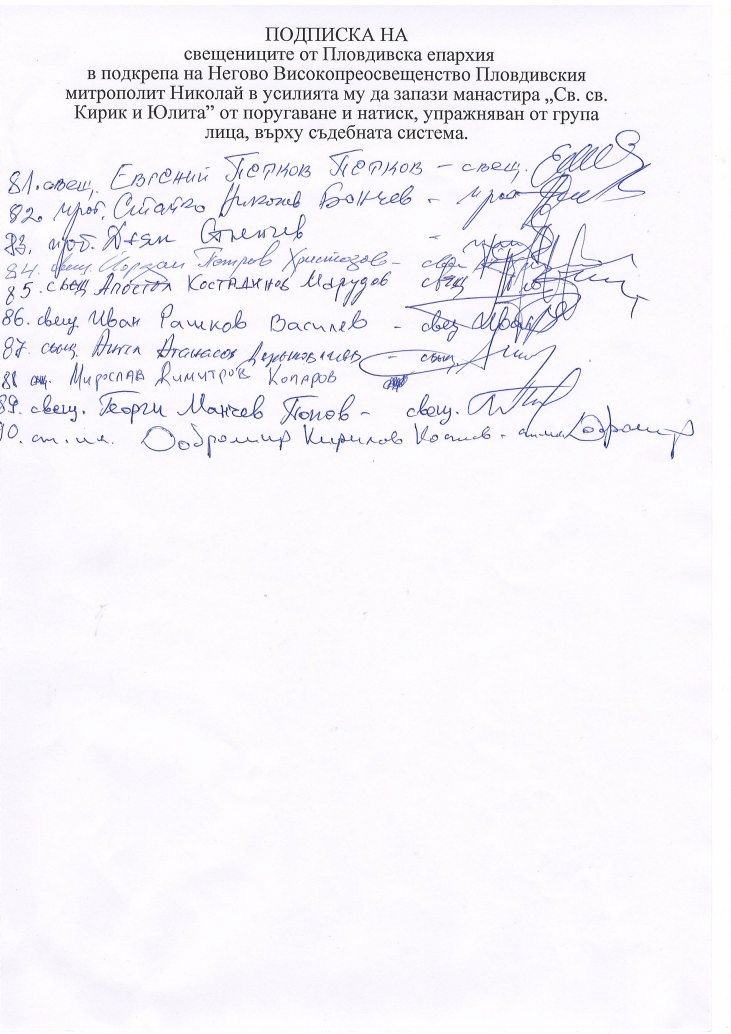 ПОДПИСКА НА
свещениците от Пловдивска епархия
в подкрепа на Негово Високопреосвещенство Пловдивския
митрополит Николай в усилията му да запази манастира „Св. св.
Кирик и Юлита” от поругаване и натиск, упражняван от група
лица, върху съдебната система.
81. свещ. Евгений Петков Петков – свещ.
82. прот. Стайко Николов Бончев –
83. прот. Деян –
84. свещ. Йордан Петров Христозов –
85. свещ Апостол Костадинов Марудов свещ
86. свещ. Иван Рашков Василев – свещ
87. свещ. Ангел Атанасов – свещ.
88 Мирослав Димитров Копаров
89. свещ. Георги Манчев Попов – свещ.
90. ст. ик. Добромир Кирилов Костов –